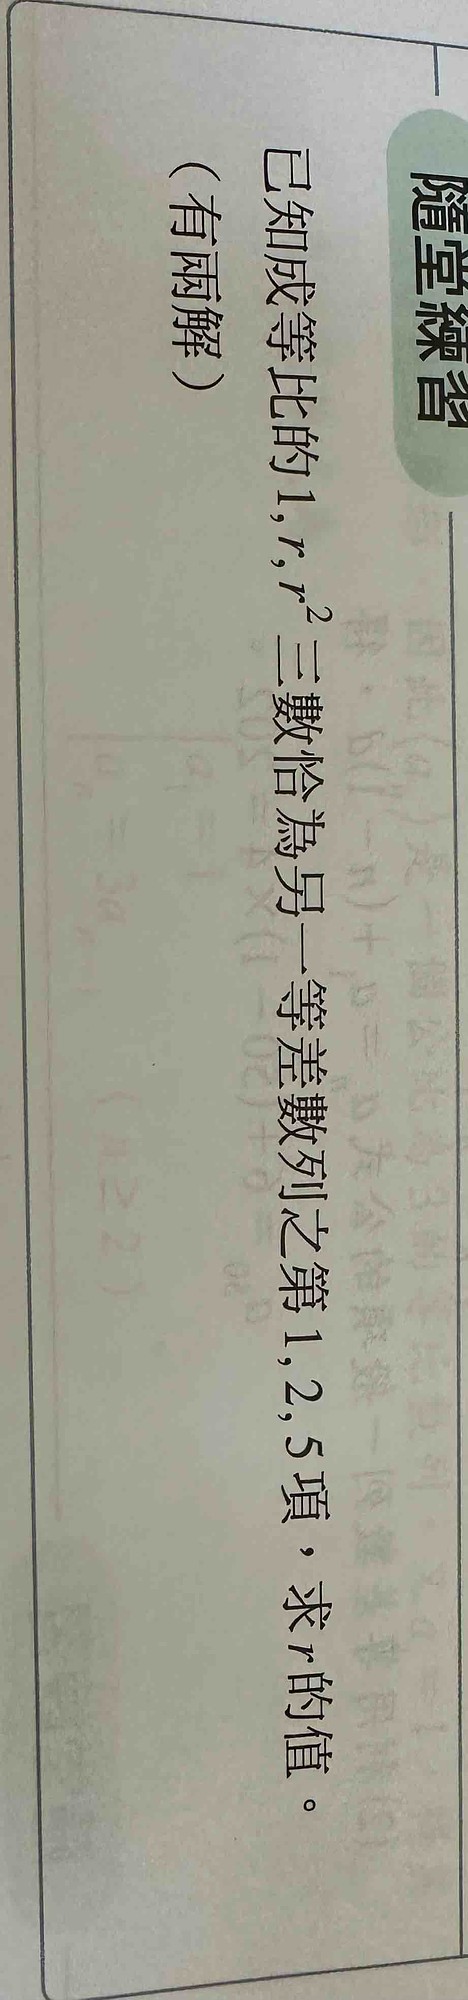 隨堂練習
已知成等比的1, r, r²三數恰為另一等差數列之第1, 2, 5項，求r的值。
（有兩解）